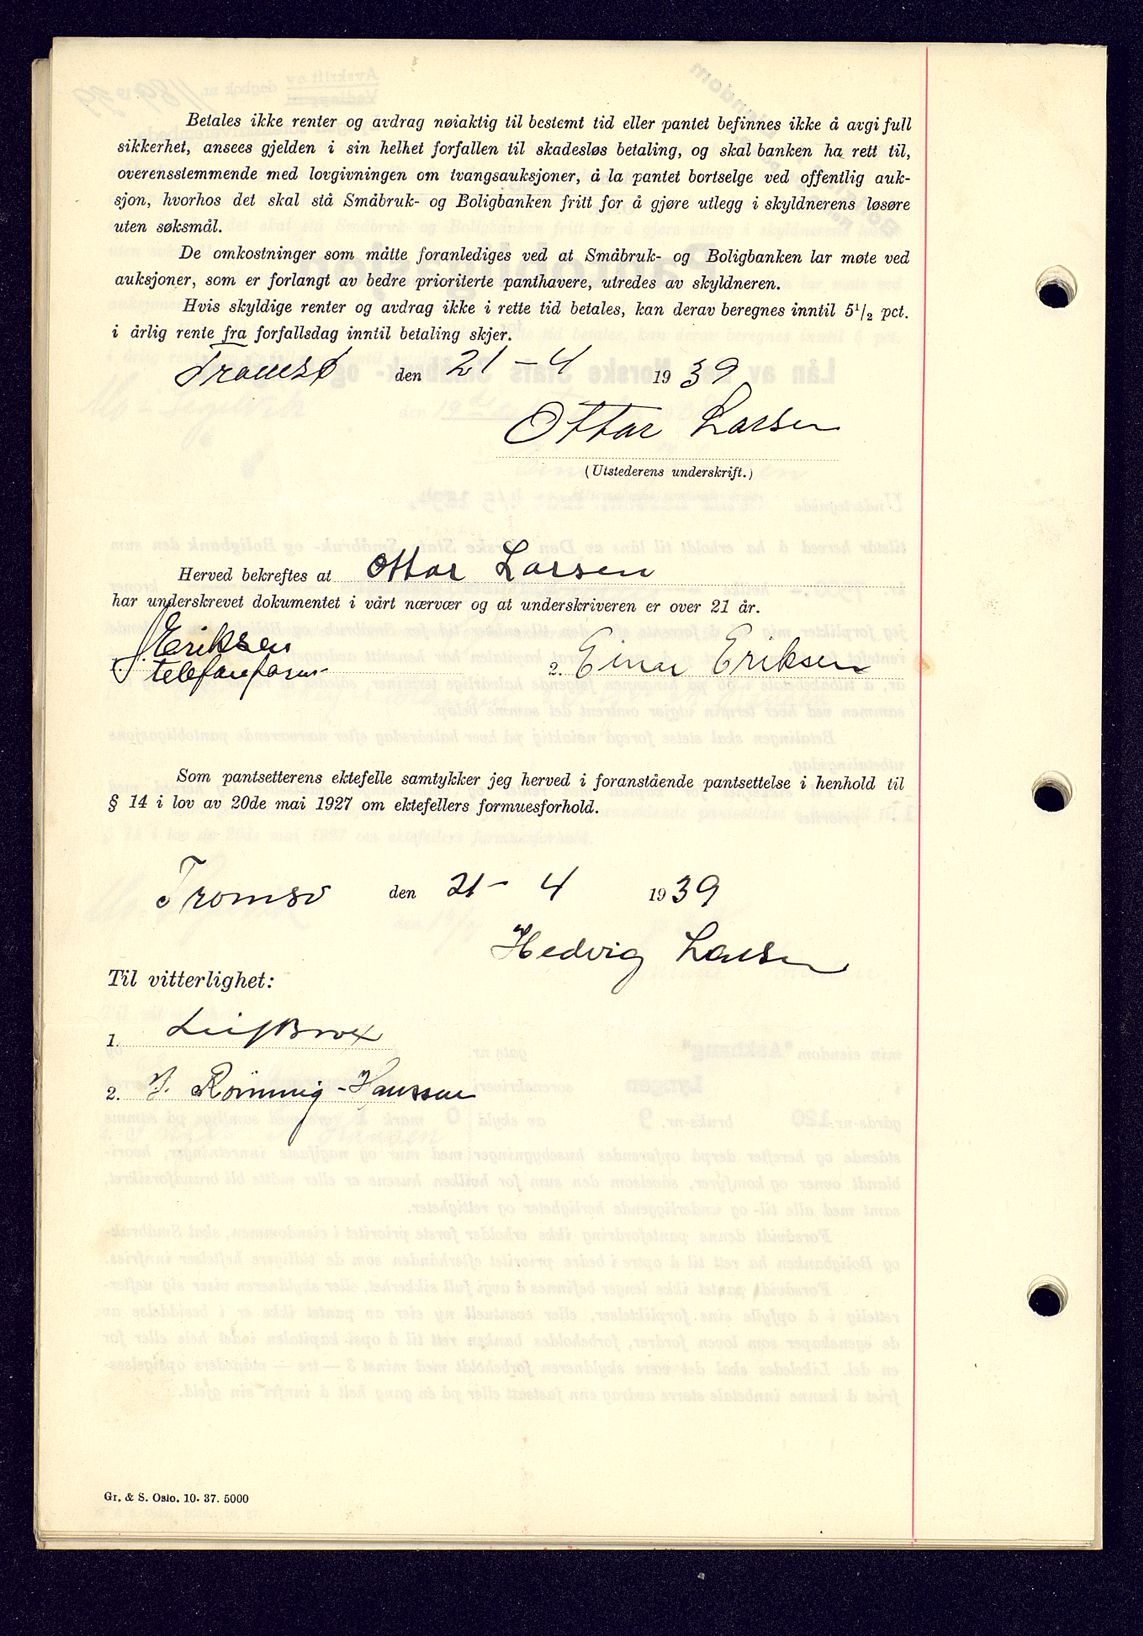 Betales ikke renter og avdrag nøiaktig til bestemt tid eller pantet befinnes ikke å avgi full
sikkerhet, ansees gjelden i sin helhet forfallen til skadesløs betaling, og skal banken ha rett til,
overensstemmende med lovgivningen om tvangsauksjoner, å la pantet bortselge ved offentlig auk-
sjon, hvorhos det skal stå Småbruk- og Boligbanken fritt for å gjøre utlegg i skyldnerens løsøre
uten søksmål.
De omkostninger som måtte foranlediges ved at Småbruk- og Boligbanken lar møte ved
auksjoner, som er forlangt av bedre prioriterte panthavere, utredes av skyldneren.
Hvis skyldige renter og avdrag ikke i rette tid betales, kan derav beregnes inntil 5 1/2 pct.
i årlig rente fra forfallsdag inntil betaling skjer.
Tromsø den 21-4 1939
Ottar Larsen
(Utstederens underskrift.)
Herved bekreftes at Ottar Larsen
har underskrevet dokumentet i vårt nærvær og at underskriveren er over 21 år.
1. Eriksen 2. Einar Eriksen
Som pantsetterens ektefelle samtykker jeg herved i foranstående pantsettelse i henhold til
§ 14 i lov av 20de mai 1927 om ektefellers formuesforhold.
Tromsø den 21-4 1939
Hedvig Larsen
Til vitterlighet:
1. Leif Brox
2. J. Rønning-Hanssen
Gr. & S. Oslo. 10. 37. 5000